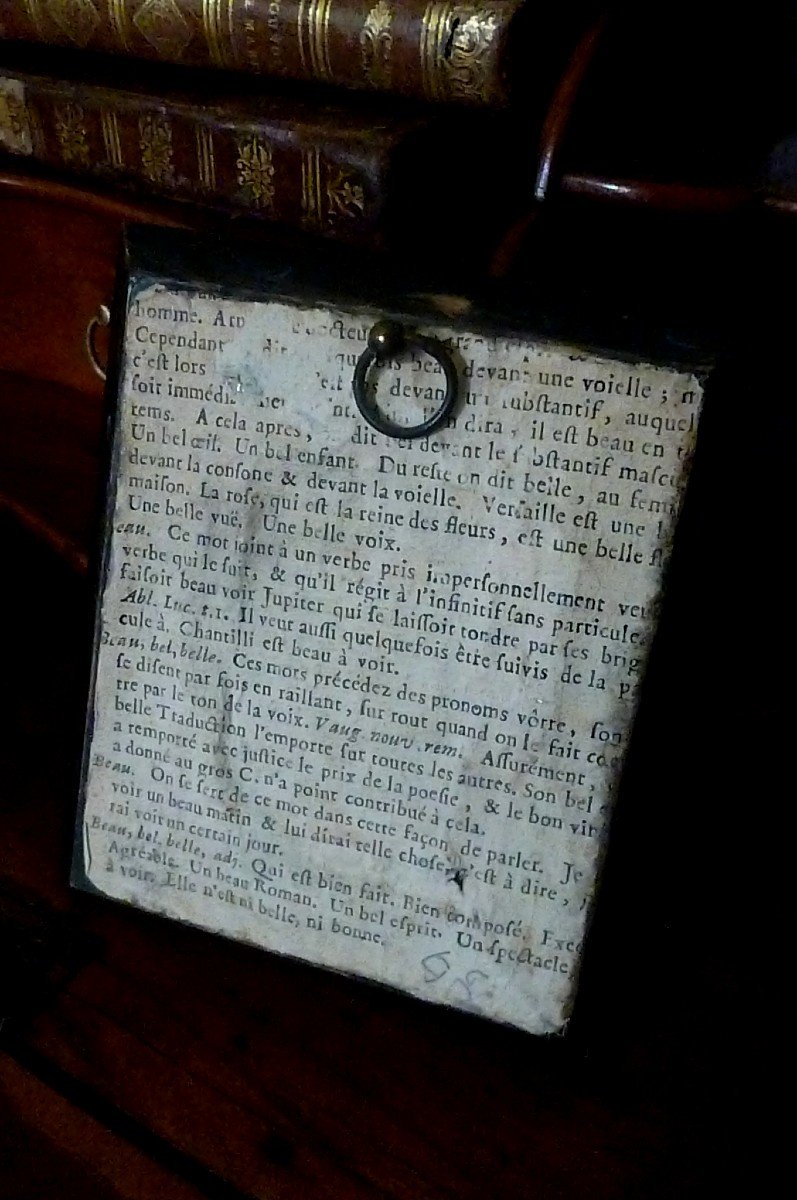 homme.
Cependant beau devant une voielle ;
c'eſt lors devant ſubſtantif, auquel
ſoit immédia dira , il eſt beau en
tems. A cela apres , dit devant le ſubſtantif maſcu
Un bel œil. Un bel enfant. Du reſte on dit belle , au femi
devant la conſone & devant la voielle. Verſaille eſt une
maiſon. La roſe, qui eſt la reine des fleurs , eſt une belle
Une belle vuë, Une belle voix.
eau. Ce mot joint à un verbe pris imperſonnellement veu
verbe qui le ſuit, & qu'il régit à l'infinitif ſans particule.
faiſoit beau voir Jupiter qui ſe laiſſoit tondre par ſes brig
Abl. Luc. t. 1. Il veut auſſi quelquefois être ſuivis de la
cule à. Chantilli eſt beau à voir.
Beau, bel, belle. Ces mots précédez des pronoms vôtre, ſon
ſe diſent par fois en raillant, ſur tout quand on le fait
tre par le ton de la voix. Vaug. nouv. rem. Aſſurément,
belle Traduction l'emporte ſur toutes les autres. Son bel
a remporté avec juſtice le prix de la poëſie, & le bon
a donné au gros C. n'a point contribué à cela.
Beau. On ſe ſert de ce mot dans cette façon de parler. Je
voir un beau matin & lui dirai telle choſe, c'eſt à dire,
rai voir un certain jour.
Beau, bel, belle, adj. Qui eſt bien fait. Bien compoſé. Exce
Agréable. Un beau Roman. Un bel eſprit. Un ſpectacle
à voir. Elle n'eſt ni belle, ni bonne.